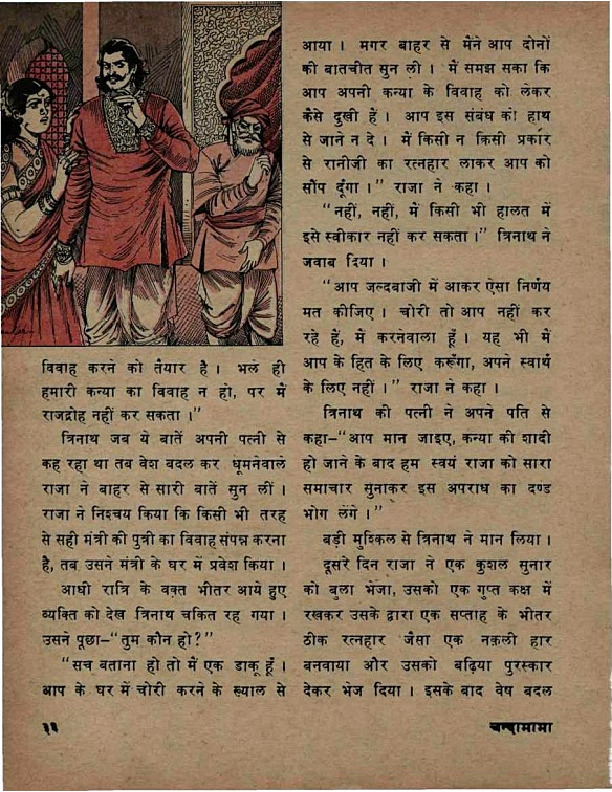 विवाह करने को तैयार है । भले ही
हमारी कन्या का विवाह न हो, पर मैं
राजद्रोह नहीं कर सकता ।”
त्रिनाथ जब ये बातें अपनी पत्नी से
कह रहा था तब वेश बदल कर घूमनेवाले
राजा ने बाहर से सारी बातें सुन लीं ।
राजा ने निश्चय किया कि किसी भी तरह
से सही मंत्री की पुत्री का विवाह संपन्न करना
है, तब उसने मंत्री के घर में प्रवेश किया ।
आधी रात्रि के वक्त भीतर आये हुए
व्यक्ति को देख त्रिनाथ चकित रह गया ।
उसने पूछा–“तुम कौन हो?”
“सच बताना हो तो मैं एक डाकू हूँ ।
आप के घर में चोरी करने के ख्याल से
आया । मगर बाहर से मैंने आप दोनों
की बातचीत सुन ली । मैं समझ सका कि
आप अपनी कन्या के विवाह को लेकर
कैसे दुखी हैं । आप इस संबंध को हाथ
से जाने न दे । मैं किसी न किसी प्रकार
से रानीजी का रत्नहार लाकर आप को
सौंप दूंगा ।” राजा ने कहा ।
“नहीं, नहीं, मैं किसी भी हालत में
इसे स्वीकार नहीं कर सकता ।” त्रिनाथ ने
जवाब दिया ।
“आप जल्दबाजी में आकर ऐसा निर्णय
मत कीजिए । चोरी तो आप नहीं कर
रहे हैं, मैं करनेवाला हूँ । यह भी मैं
आप के हित के लिए करूँगा, अपने स्वार्थ
के लिए नहीं ।” राजा ने कहा ।
त्रिनाथ की पत्नी ने अपने पति से
कहा–“आप मान जाइए, कन्या की शादी
हो जाने के बाद हम स्वयं राजा को सारा
समाचार सुनाकर इस अपराध का दण्ड
भोग लेंगे ।”
बड़ी मुश्किल से त्रिनाथ ने मान लिया ।
दूसरे दिन राजा ने एक कुशल सुनार
को बुला भेजा, उसको एक गुप्त कक्ष में
रखकर उसके द्वारा एक सप्ताह के भीतर
ठीक रत्नहार जैसा एक नक़ली हार
बनवाया और उसको बढ़िया पुरस्कार
देकर भेज दिया । इसके बाद वेष बदल
चन्दामामा